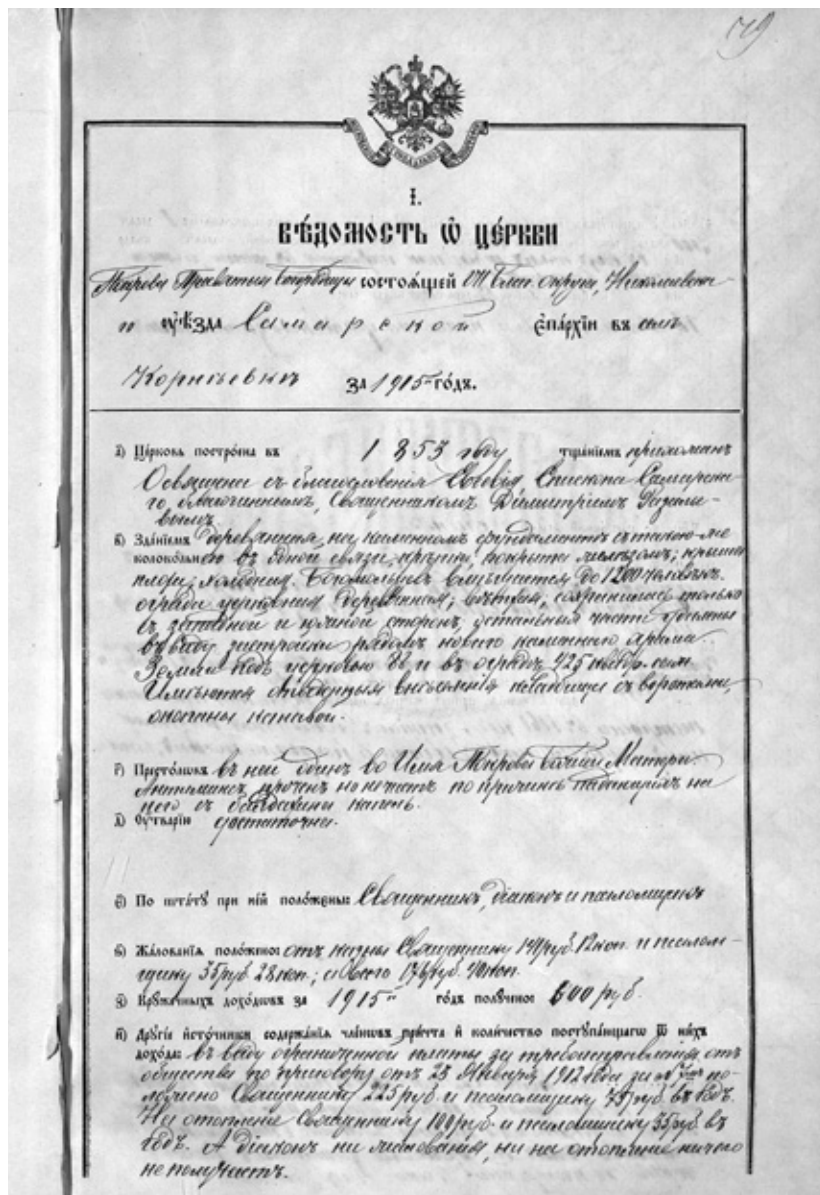 79
І.
ВѢДОМОСТЬ Ѡ ЦЕ́РКВИ
Покрова Пресвятыя Богородицы состоѧ́щей VII Благ. округа, Николаевска-
го ᲂу҆ѣ́зда Самарской є҆па́рхїи въ селѣ
Корнѣевкѣ за 1915 го́дъ.
а҃) Це́рковь постро́ена въ 1853 году тща́нїемъ прихожанъ
Освящена съ благословенія Епископа Самарска-
го, благочиннымъ, Священникомъ Димитріемъ
в҃) Зда́нїемъ деревянная, на каменномъ фундаментѣ съ такою-же
колоко́льнею въ одной связи, крѣпка, покрыта желѣзомъ; крыша
холодная. Богомольцевъ вмѣщается до 1200 человѣкъ.
ограда церковная деревянная; ветхая, сохранилась только
въ западной и южной сторонѣ, остальныя части
въ виду постройки рядомъ новаго каменнаго храма.
Земли подъ церковью и въ оградѣ 925 квадр. саж.
Имѣются кладбища съ воротами,
окопаны канавой.
г҃) Престо́лѡвъ въ ней одинъ во Имя Покрова Божіей Матери.
Антиминсъ проченъ но не чистъ по причинѣ паданія на
него съ балдахина капель.
д҃) Оу҆́тварїю достаточна.
є҃) По шта́тꙋ при не́й поло́жены: Священникъ, діаконъ и псаломщикъ
ѕ҃) Жа́лованїѧ поло́жено: отъ казны Священнику 141 руб. 12 коп. и псалом-
щику 35 руб. 28 коп.; а всего 176 руб. 40 коп.
з҃) Крꙋ́жечныхъ дохо́дѡвъ за 1915 го́дъ полꙋ́чено 600 руб.
и҃) Дрꙋгі́е и҆сто́чники содержа́нїѧ чле́нѡвъ при́чта и҆ коли́чество постꙋпа́ющагѡ ѿ ни́хъ
дохо́да: въ виду ограниченной платы за требоисправленія отъ
общества по приговору отъ 25 Января 1912 года за по-
лучено Священнику 225 руб. и псаломщику 75 руб. въ годъ.
На отопленіе Священнику 100 руб. и псаломщику 35 руб. въ
годъ. А діаконъ ни жалованія, ни на отопленіе ничего
не получаетъ.